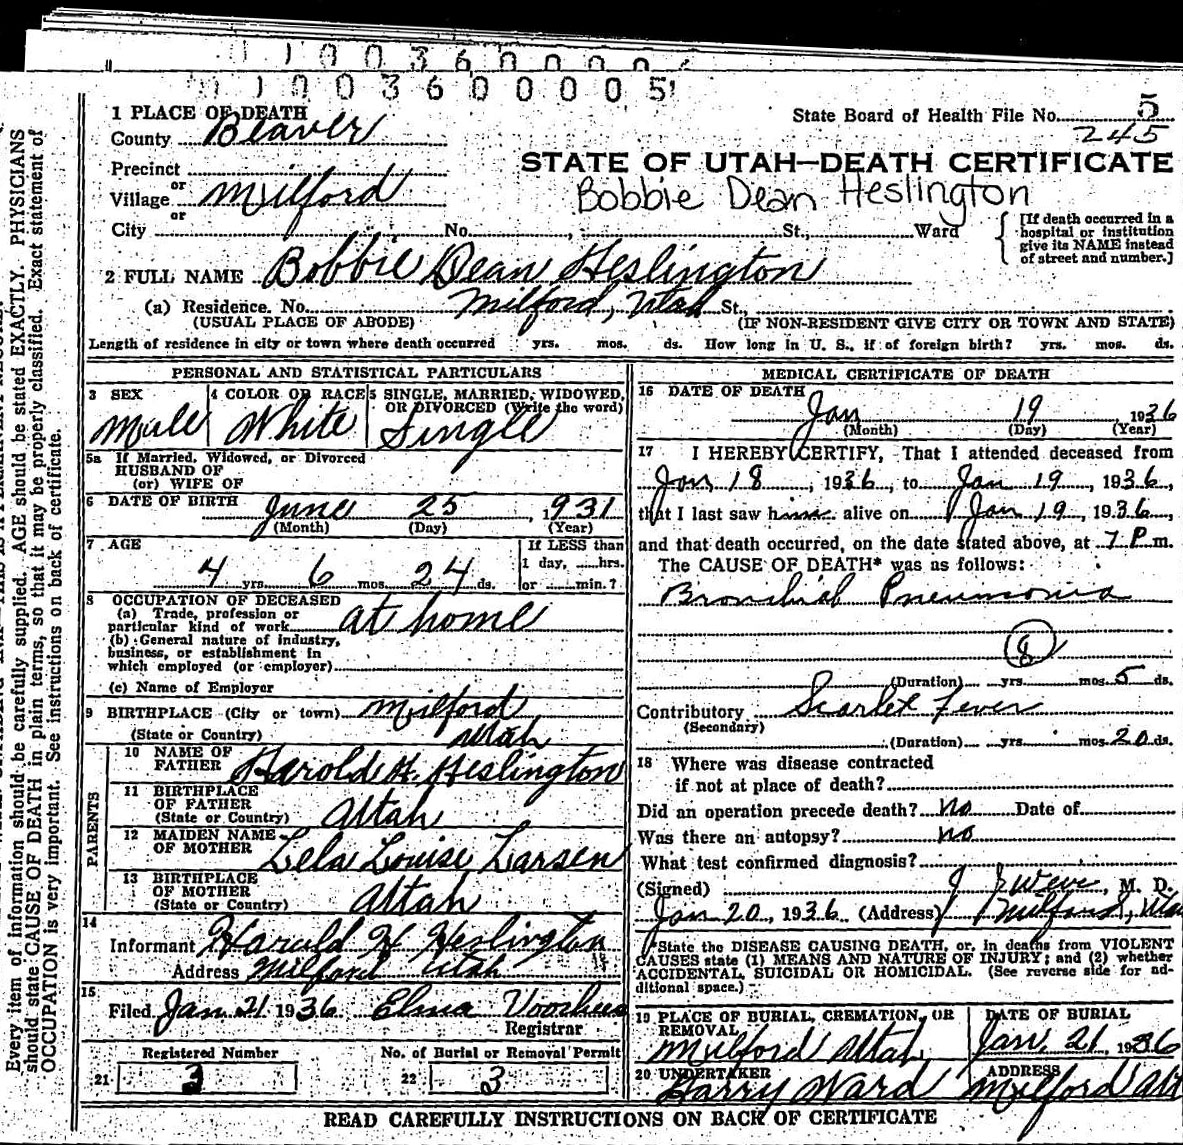 1 1 0 0 3 6 0 0 0 0
1 1 0 0 3 6 0 0 0 0 5
Every item of information should be carefully supplied. AGE should be stated EXACTLY. PHYSICIANS
should state CAUSE OF DEATH in plain terms, so that it may be properly classified. Exact statement of
OCCUPATION is very important. See instructions on back of certificate.
1 PLACE OF DEATH
County Beaver
Precinct
or
Village Milford
or
City No. , St., Ward
State Board of Health File No. 5
245
STATE OF UTAH—DEATH CERTIFICATE
Bobbie Dean Heslington
[If death occurred in a
hospital or institution
give its NAME instead
of street and number.]
2 FULL NAME Bobbie Dean Heslington
(a) Residence. No. Milford, Utah St.,
(USUAL PLACE OF ABODE) (IF NON-RESIDENT GIVE CITY OR TOWN AND STATE)
Length of residence in city or town where death occurred yrs. mos. ds. How long in U. S., if of foreign birth? yrs. mos. ds.
PERSONAL AND STATISTICAL PARTICULARS
3 SEX
Male
4 COLOR OR RACE
White
5 SINGLE, MARRIED, WIDOWED,
OR DIVORCED (Write the word)
Single
5a If Married, Widowed, or Divorced
HUSBAND OF
(or) WIFE OF
6 DATE OF BIRTH June 25, 1931
(Month) (Day) (Year)
7 AGE
4 yrs. 6 mos. 24 ds.
If LESS than
1 day, hrs.
or min.?
8 OCCUPATION OF DECEASED
(a) Trade, profession or
particular kind of work at home
(b) General nature of industry,
business, or establishment in
which employed (or employer)
(c) Name of Employer
9 BIRTHPLACE (City or town) Milford
(State or Country) Utah
PARENTS
10 NAME OF
FATHER Harold H. Heslington
11 BIRTHPLACE
OF FATHER
(State or Country) Utah
12 MAIDEN NAME
OF MOTHER Lela Louise Larsen
13 BIRTHPLACE
OF MOTHER
(State or Country) Utah
14
Informant Harald H Heslington
Address Milford Utah
15
Filed Jan 21 1936 Elma Voorhees
Registrar
Registered Number
21 3
No. of Burial or Removal Permit
22 3
MEDICAL CERTIFICATE OF DEATH
16 DATE OF DEATH
Jan 19 1936
(Month) (Day) (Year)
17 I HEREBY CERTIFY, That I attended deceased from
Jan 18, 1936, to Jan 19, 1936,
that I last saw him alive on Jan 19, 1936,
and that death occurred, on the date stated above, at 7 P m.
The CAUSE OF DEATH* was as follows:
Bronchial Pneumonia
8
(Duration) yrs. mos. 5 ds.
Contributory Scarlet Fever
(Secondary)
(Duration) yrs. mos. 20 ds.
18 Where was disease contracted
if not at place of death?
Did an operation precede death? no Date of
Was there an autopsy? no
What test confirmed diagnosis?
(Signed) , M. D.
Jan 20, 1936 (Address) Milford, Uta
*State the DISEASE CAUSING DEATH, or, in deaths from VIOLENT
CAUSES state (1) MEANS AND NATURE OF INJURY; and (2) whether
ACCIDENTAL, SUICIDAL OR HOMICIDAL. (See reverse side for ad-
ditional space.)
19 PLACE OF BURIAL, CREMATION, OR
REMOVAL
Milford Utah
DATE OF BURIAL
Jan. 21, 1936
20 UNDERTAKER
Harry Ward
ADDRESS
Milford Ut
READ CAREFULLY INSTRUCTIONS ON BACK OF CERTIFICATE